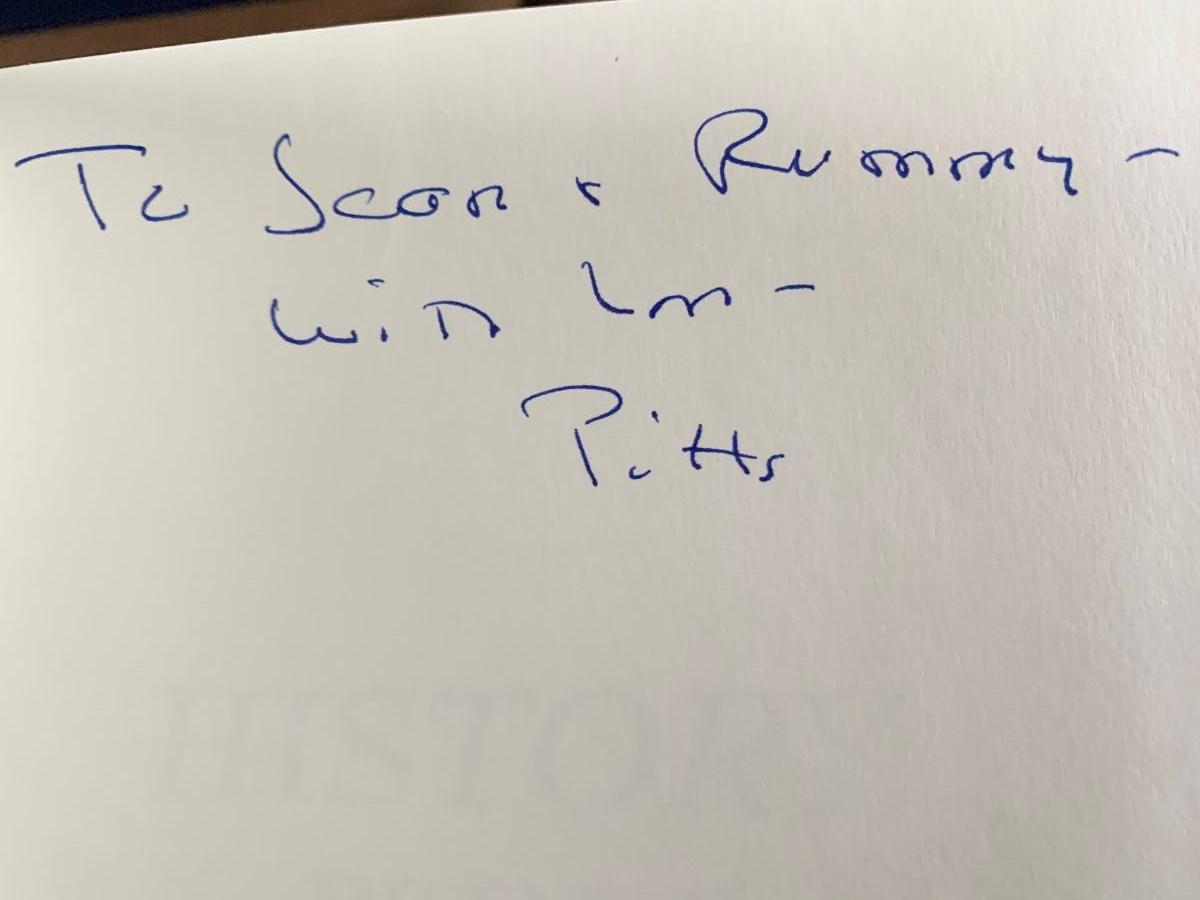 To Sean & Rummy -
with love -
Pitts
HISTORY